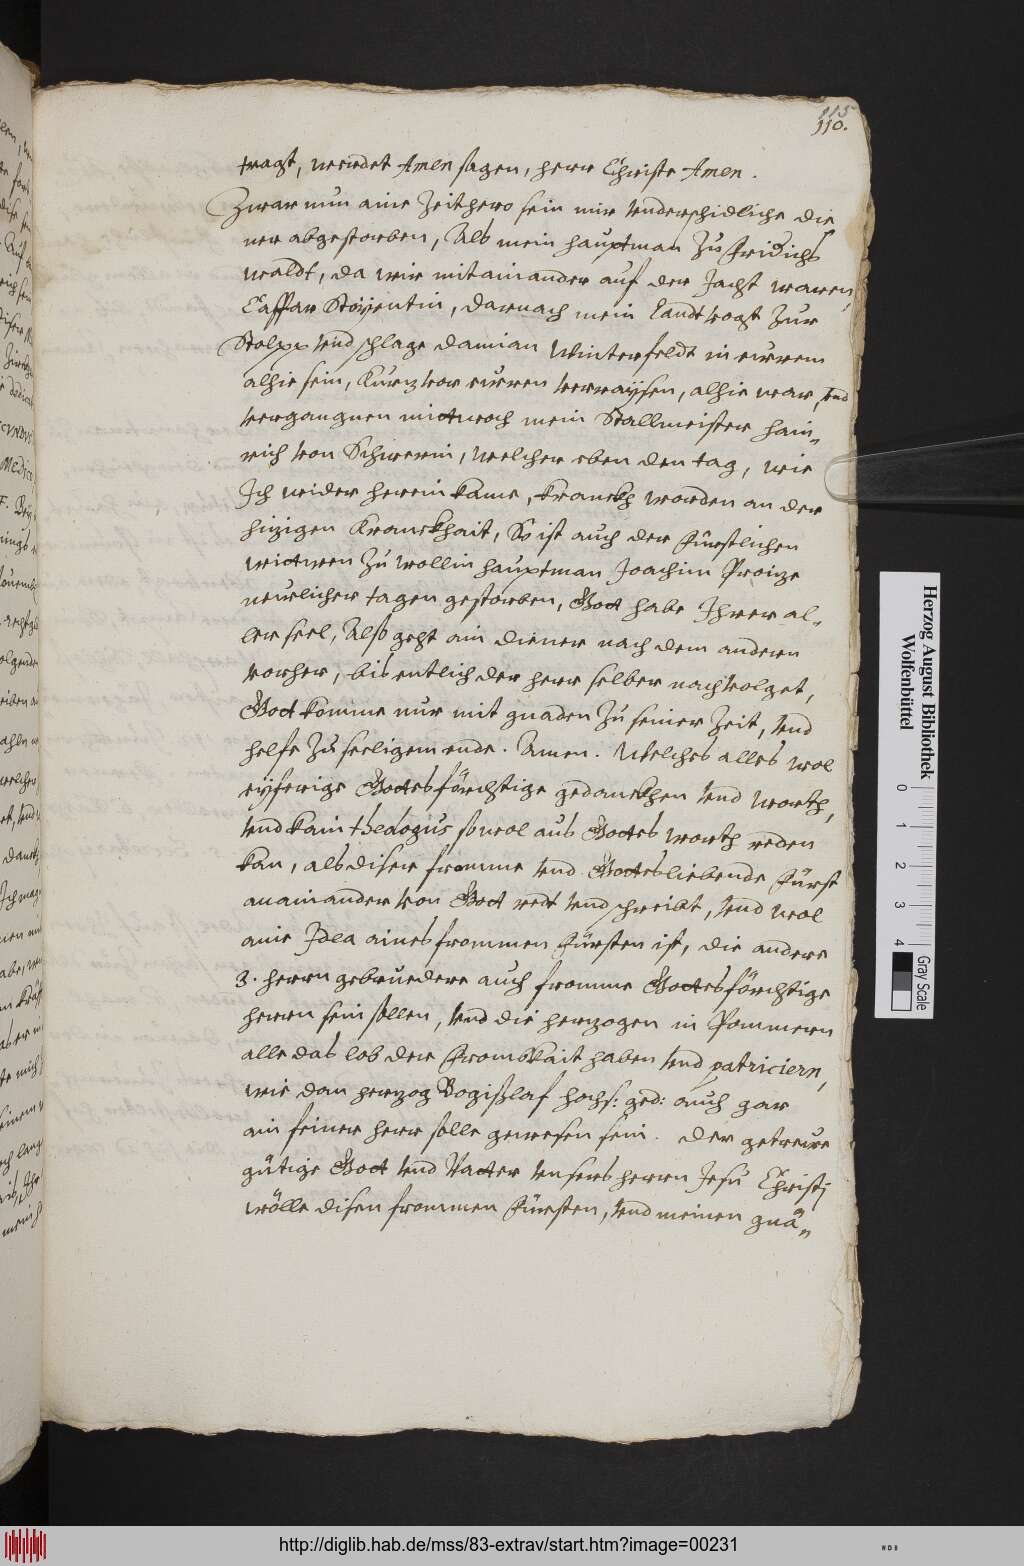 115
110.
tragt, werdet Amen sagen, herr Christe Amen.
Zwar nun aine Zeithero sein mir vnderschidliche die
ner abgestorben, Als mein hauptman Zu Fridichs
waldt, da wir mitainander auf der Jacht waren,
Caspar Stoÿentin, darnach mein landt vogt Zur
Stolpp vnd schlage damian Winterfeldt in eurem
alhie sein, Kurz vor eurem verraÿsen, alhie war, vnd
vergangnen mitwoch mein Stallmeister hain„
rich von Schwerin, welcher eben den tag, wie
Ich wider herein kame, kranckh worden an der
hizigen Kranckhait, So ist auch der Fürstlichen
witwen Zu wollin hauptman Joachim
neulicher tagen gestorben, Gott habe Ihrer al„
ler seel, Also geht ain diener nach dem andern
vorher, bis entlich der herr selber nachvolget,
Gott komme nur mit gnaden Zu seiner Zeit, vnd
helfe Zu seeligem ende. Amen. Welches alles wol
eÿferige Gottsförchtige gedanckhen vnd worth,
vnd kain theologus sowol aus Gottes worth reden
kan, als diser fromme vnd Gottesliebende Fürst
anainander von Gott redt vnd schreibt, vnd wol
aine Idea aines frommen Fürsten ist, die andere
3. herrn gebruedere auch fromme Gottsförchtige
herrn sein sollen, vnd die herzogen in Pommern
alle das lob der Frombkait haben vnd patriciern,
wie dan herzog Bogißlaf hochs: ged: auch gar
ain feiner herr solle gewesen sein. der getreue
gütige Gott vnd Vatter vnsers herrn Jesu Christj
wölle disen frommen Fürsten, vnd meinen gnä„
Herzog August Bibliothek
Wolfenbüttel
0 1 2 3 4
Gray Scale
http://diglib.hab.de/mss/83-extrav/start.htm?image=00231